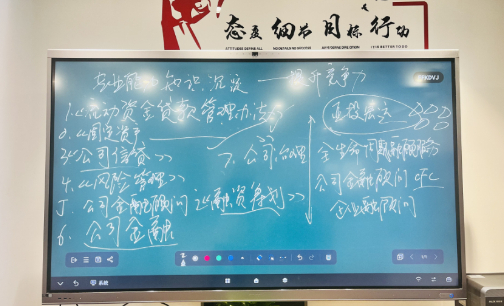 态度 细节 目标 行动
专业能力 知识沉淀 —— 提升竞争力
1.《流动资金贷款管理办法》
2.《固定资产
3.《公司信贷》
7. 公司治理
4.《风险管理》
5. 公司金融顾问 《融资筹划》
6. 公司金融
全生命周期融资服务
公司金融顾问 CFC
企业融顾问
系统
1/1